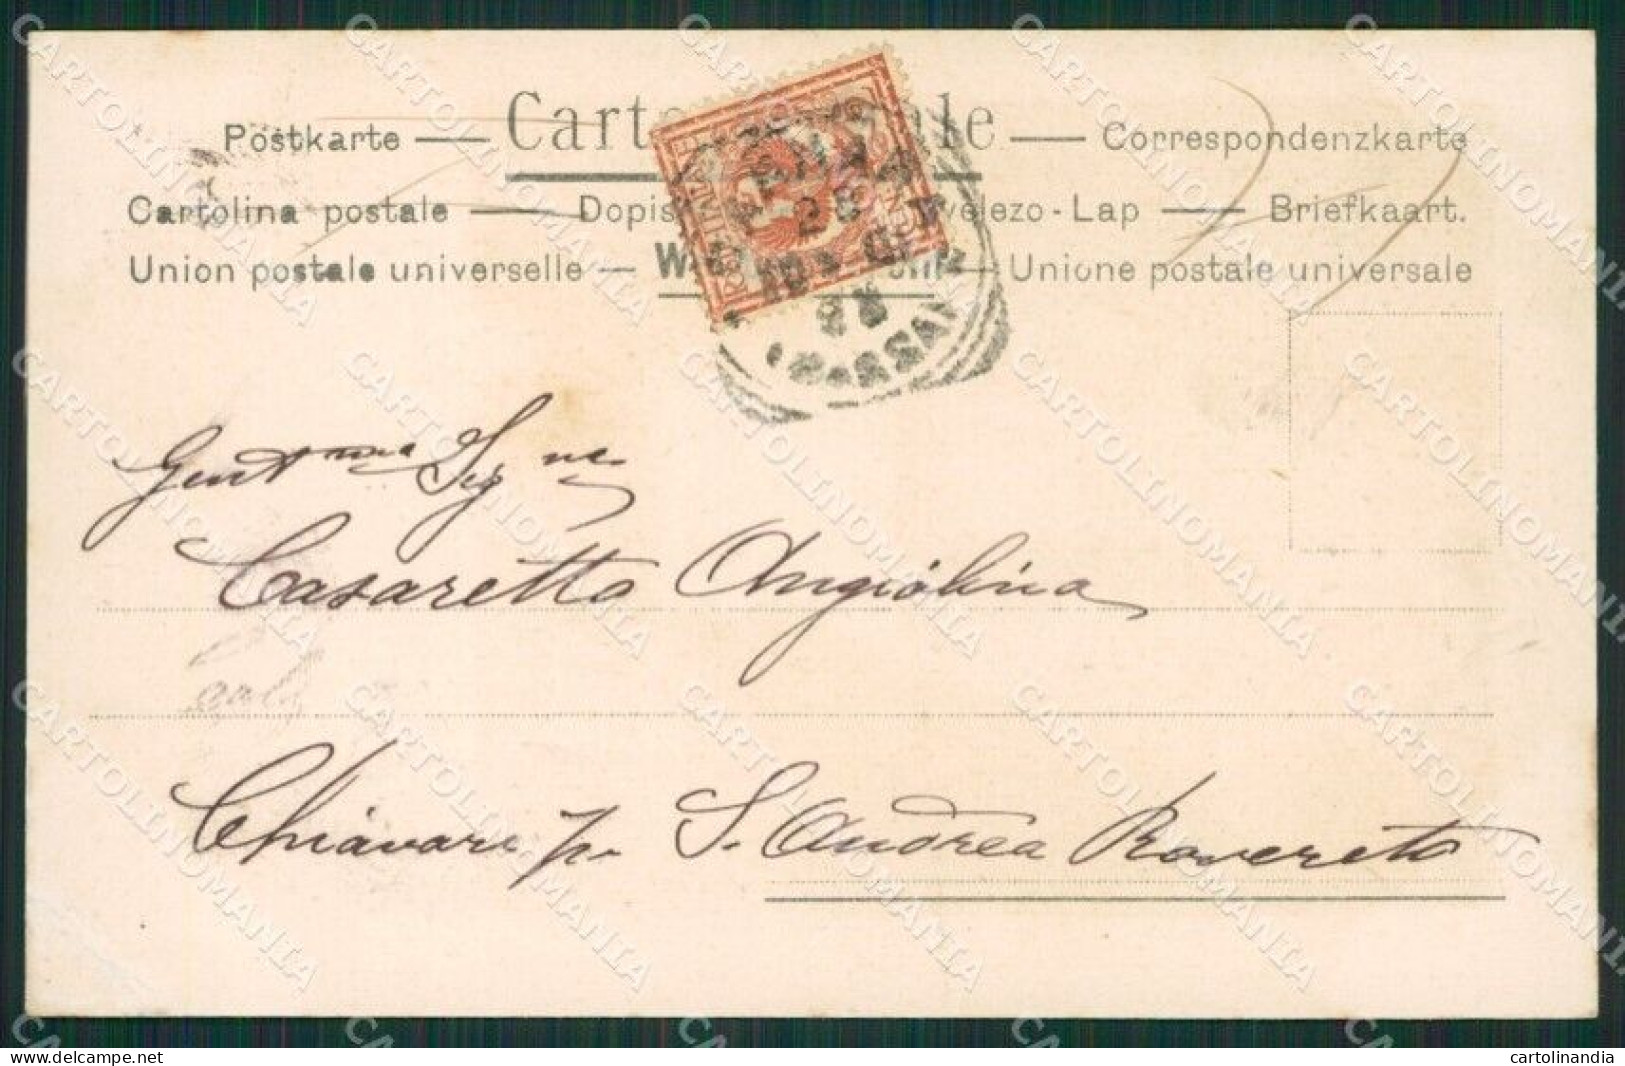 Carte postale
Postkarte — Correspondenzkarte
Cartolina postale — Dopis velezo-Lap — Briefkaart.
Union postale universelle — W — Unione postale universale
28
Gent.ma Sig.na
Casaretto Angiolina
Chiavari per S. Andrea Rovereto
CARTOLINOMANIA
cartolinandia
2024-04-12 09:00:10